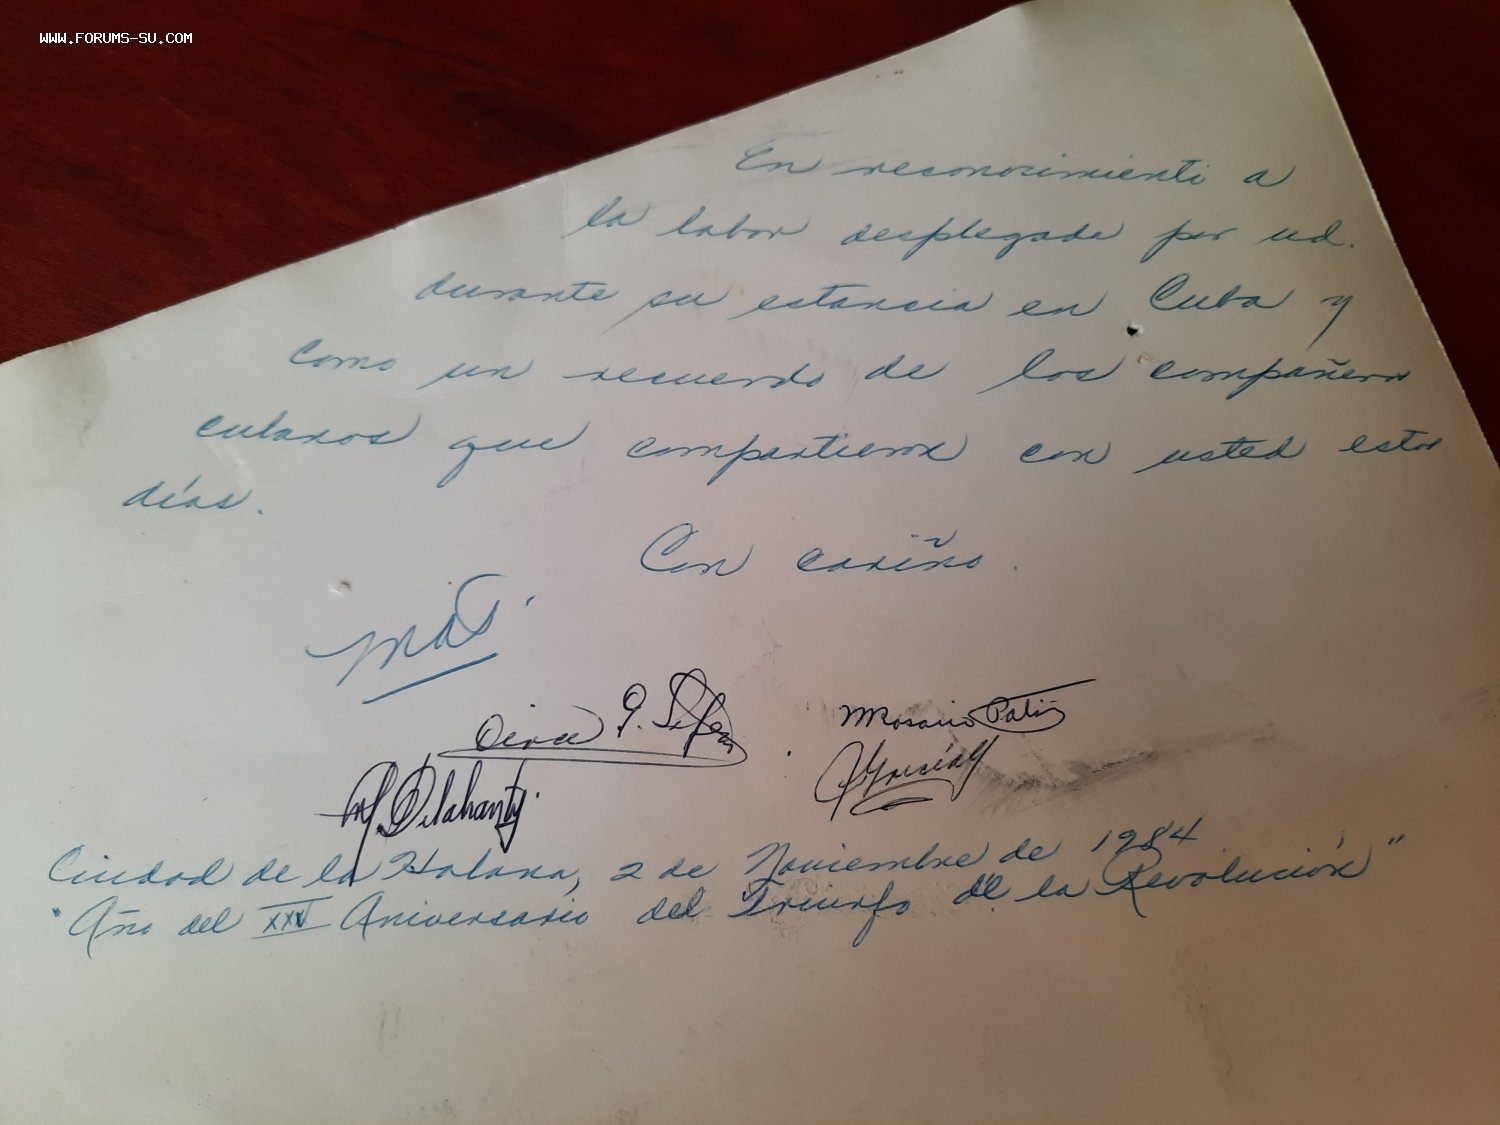 WWW.FORUMS-SU.COM
En reconocimiento a
la labor desplegada por ud.
durante su estancia en Cuba y
como un recuerdo de los compañeros
cubanos que compartieron con usted estos
días.
Con cariño.
M Rosario
Delahanty
Ciudad de la Habana, 2 de Noviembre de 1984
"Año del XXV Aniversario del Triunfo de la Revolución"